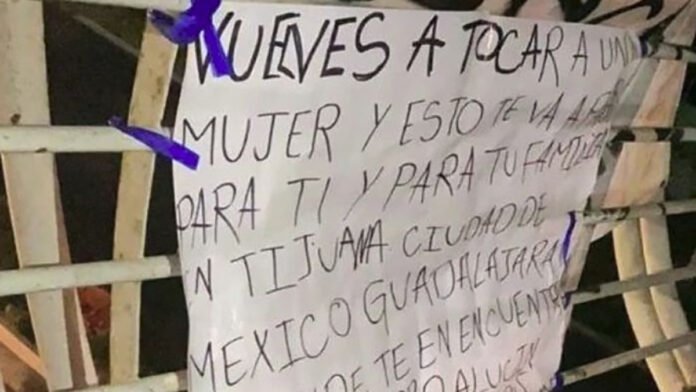 VUELVES A TOCAR A UNA
MUJER Y ESTO TE VA A
PARA TI Y PARA TU FAMILIA
EN TIJUANA CIUDAD DE
MEXICO GUADALAJARA
DE TE EN ENCUENTR